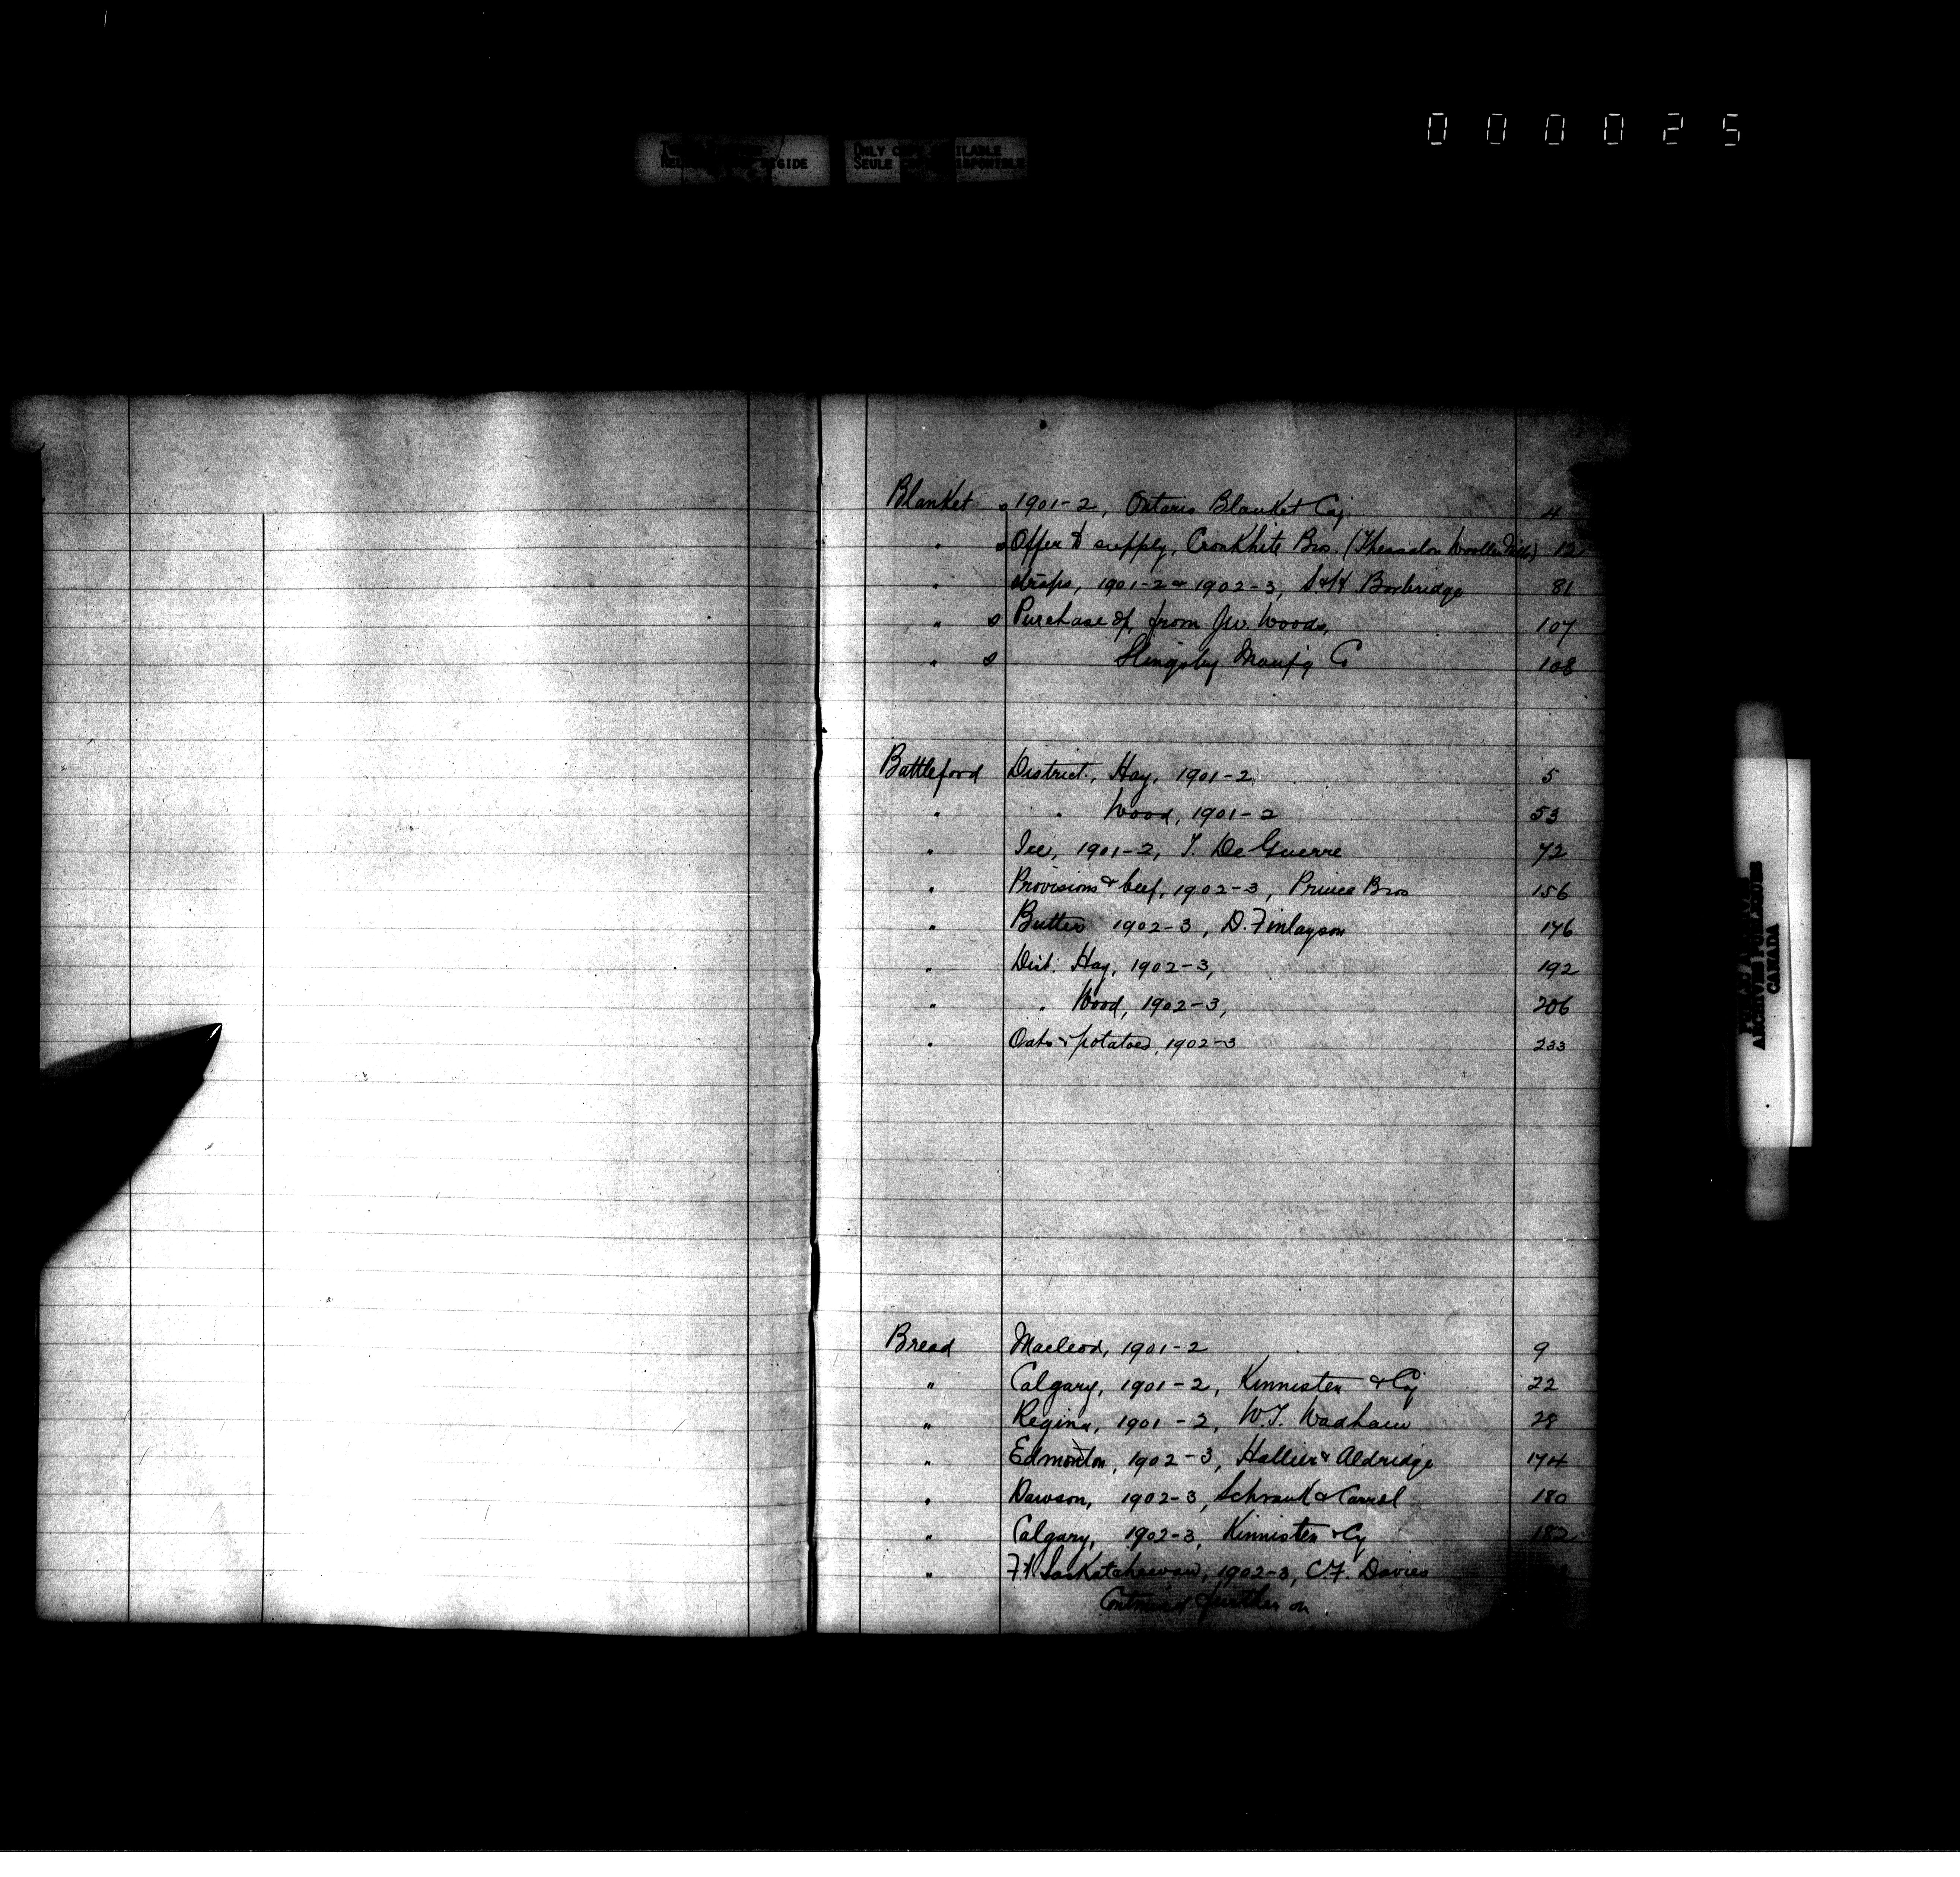 000025
ONLY COPY AVAILABLE
SEULE COPIE DISPONIBLE
Blanket s 1901-2, Ontario Blanket Coy 4
" s Offer to supply, Cronkhite Bros. (Thessalon Woollen Mills) 12
" straps, 1901-2 & 1902-3, S & H Borbridge 81
" s Purchase of, from J.W. Woods, 107
" s Slingsby Manfg Co 108
Battleford District, Hay, 1901-2 5
" " Wood, 1901-2 53
" Ice, 1901-2, T. De Guerre 72
" Provisions & beef, 1902-3, Prince Bros 156
" Butter 1902-3, D. Finlayson 176
" Dist. Hay, 1902-3, 192
" " Wood, 1902-3, 206
" Oats & potatoes, 1902-3 233
Bread Macleod, 1901-2 9
" Calgary, 1901-2, Kinnisten & Coy 22
" Regina, 1901-2, W.T. Wadham 28
" Edmonton, 1902-3, Hallier & Aldridge 174
" Dawson, 1902-3, Schrank & Carrel 180
" Calgary, 1902-3, Kinnisten & Cy 182
" Ft Saskatchewan, 1902-3, C.F. Davies
Continued further on
PUBLIC ARCHIVES
ARCHIVES PUBLIQUES
CANADA